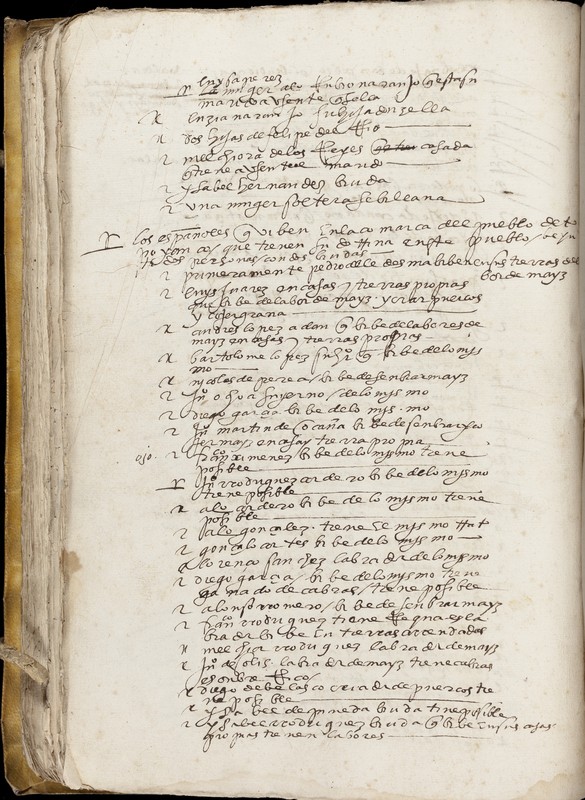 luysa perez
la muger de Rubio naranjo questa su
marido ausente
luzia naranjo su hija donzella
dos hijas de felipe del Rio
melchiora de los Reyes casada
tiene ausente marido
ysabel hernandez biuda
una muger soltera sebillana
los españoles q viben en la comarca del pueblo de
que tienen su dotrina en este pueblo
personas con dos biudas
primeramente pedro vibe en sus tierras del
labor de mayz
luys suarez en casas y tierras propias
que bibe de labor de mayz y criar puercos
y coxer grana
andres lopez adan q bibe de labores de
mayz en casas y tierras propias
bartolome lopez su hjo q bibe de lo mis
mo
nicolas de perea / bibe de senbrar mayz
Juo ochoa su yerno / de lo mismo
diego garcia bibe de lo mis mo
Juo martin de ocaña bibe de senbrar y co
ger mayz en casa y tierra propia
ojo. franco ximenez bibe de lo mismo tiene
posible
Juo rrodriguez cordero bibe de lo mismo
tiene posible
alo cordero bibe de lo mismo tiene
posible
alo gonçalez tiene lo mismo
gonçalo cortes bibe de lo mismo
lorenço sanchez labrador de lo mismo
diego garcia / bibe de lo mismo tiene
ganado de cabras / tiene posible
alonso rromero / bibe de senbrar mayz
franco rrodriguez tiene Requa y es la
brador bibe en tierras arrendadas
melchior rrodriguez labrador de mayz
Juo de solis labrador de mayz tiene cabras
es onbre Rico
diego de belasco criador de puercos tie
ne posible
ysabel de pineda biuda tine posible
ysabel rrodriguez biuda q bibe en sus casas
propias tienen labores